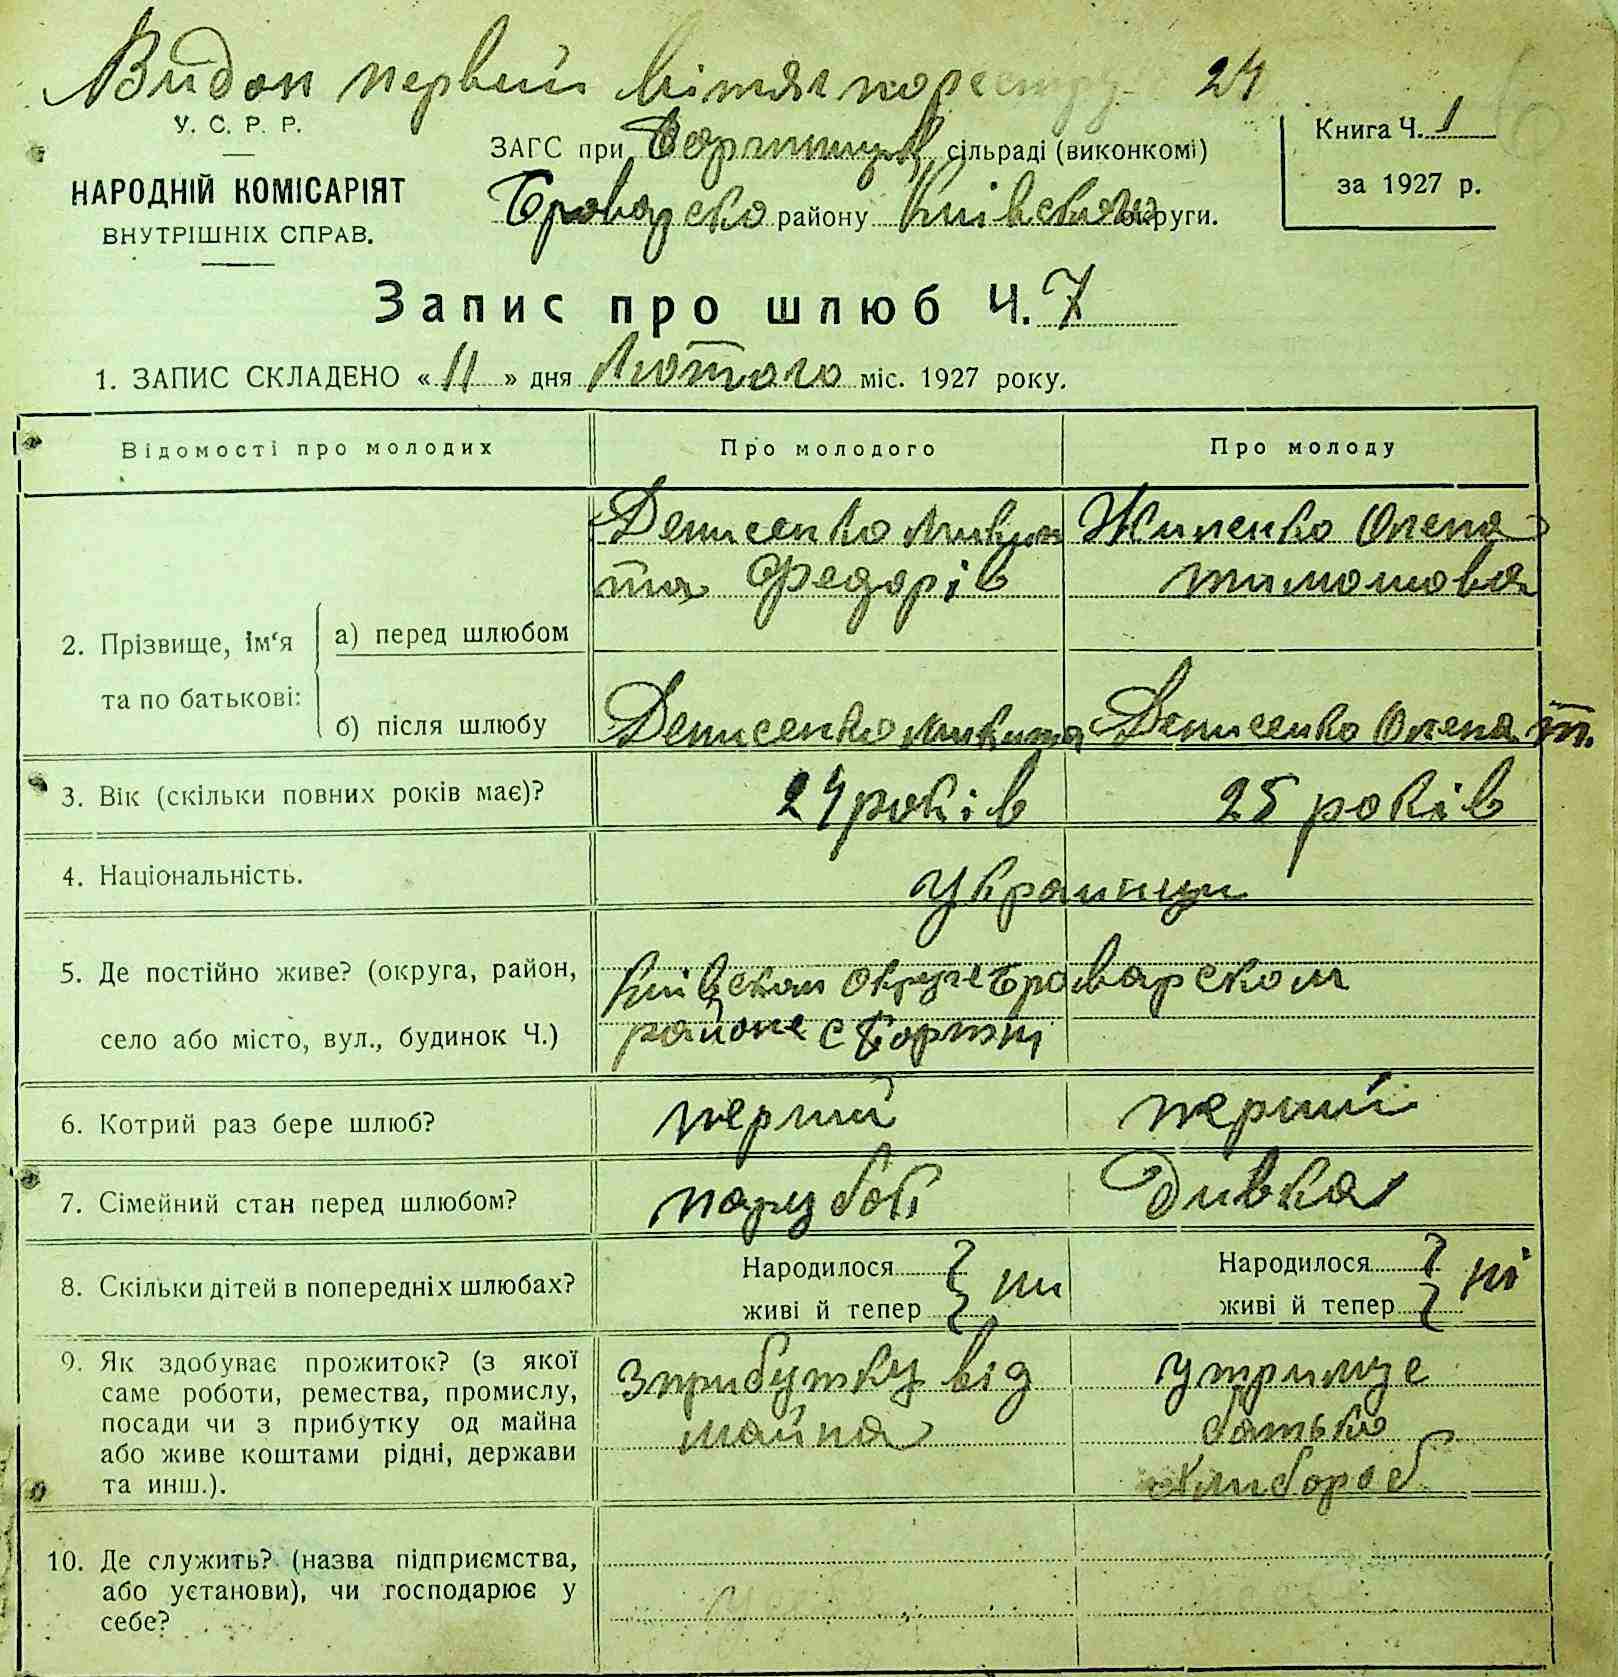 Видан первий витяг по реєстру 24
У. С. Р. Р.
НАРОДНІЙ КОМІСАРІЯТ
ВНУТРІШНІХ СПРАВ.
ЗАГС при сільраді (виконкомі)
Броварско району Київскои округи.
Книга Ч. 1
за 1927 р.
Запис про шлюб Ч. 7
1. ЗАПИС СКЛАДЕНО « 11 » дня Лютого міс. 1927 року.
Відомості про молодих Про молодого Про молоду
2. Прізвище, ім'я та по батькові:
а) перед шлюбом
Денисенко Микита Федорів
Жиленко Олена
тимошова
б) після шлюбу
Денисенко Микита Денисенко Олена Т.
3. Вік (скільки повних років має)? 24 років 25 років
4. Національність. Украинци
5. Де постійно живе? (округа, район,
село або місто, вул., будинок Ч.)
Київскои округе Броварском
районе с Бортнічі
6. Котрий раз бере шлюб? перший перший
7. Сімейний стан перед шлюбом? парубок дивка
8. Скільки дітей в попередніх шлюбах?
Народилося
живі й тепер } ни
Народилося
живі й тепер } ні
9. Як здобуває прожиток? (з якої
саме роботи, ремества, промислу,
посади чи з прибутку од майна
або живе коштами рідні, держави
та инш.).
З прибутку від
майна
утримує
батько
хлибороб
10. Де служить? (назва підприємства,
або установи), чи господарює у
себе?